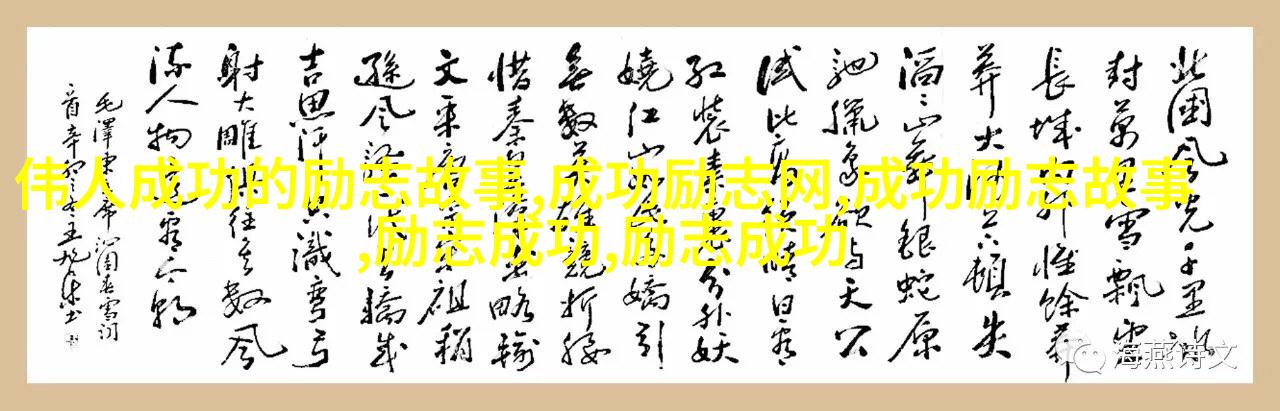 伟人成功的励志故事,成功励志网,成功励志故事
,励志成功,励志成功
北國风光千里冰
封萬里雪飄望
長城内外惟馀莽
莽大河上下頓失
滔滔山舞銀蛇原
馳臘象欲与天公
试比高须晴日看
红装素裹分外妖
娆江山如此多嬌引
无數英雄競折腰
惜秦皇漢武略输
文采唐宗宋祖稍
逊风骚一代天驕成
吉思汗只識弯弓
射大雕俱往矣數风
流人物还看今朝
毛澤東
海燕诗文